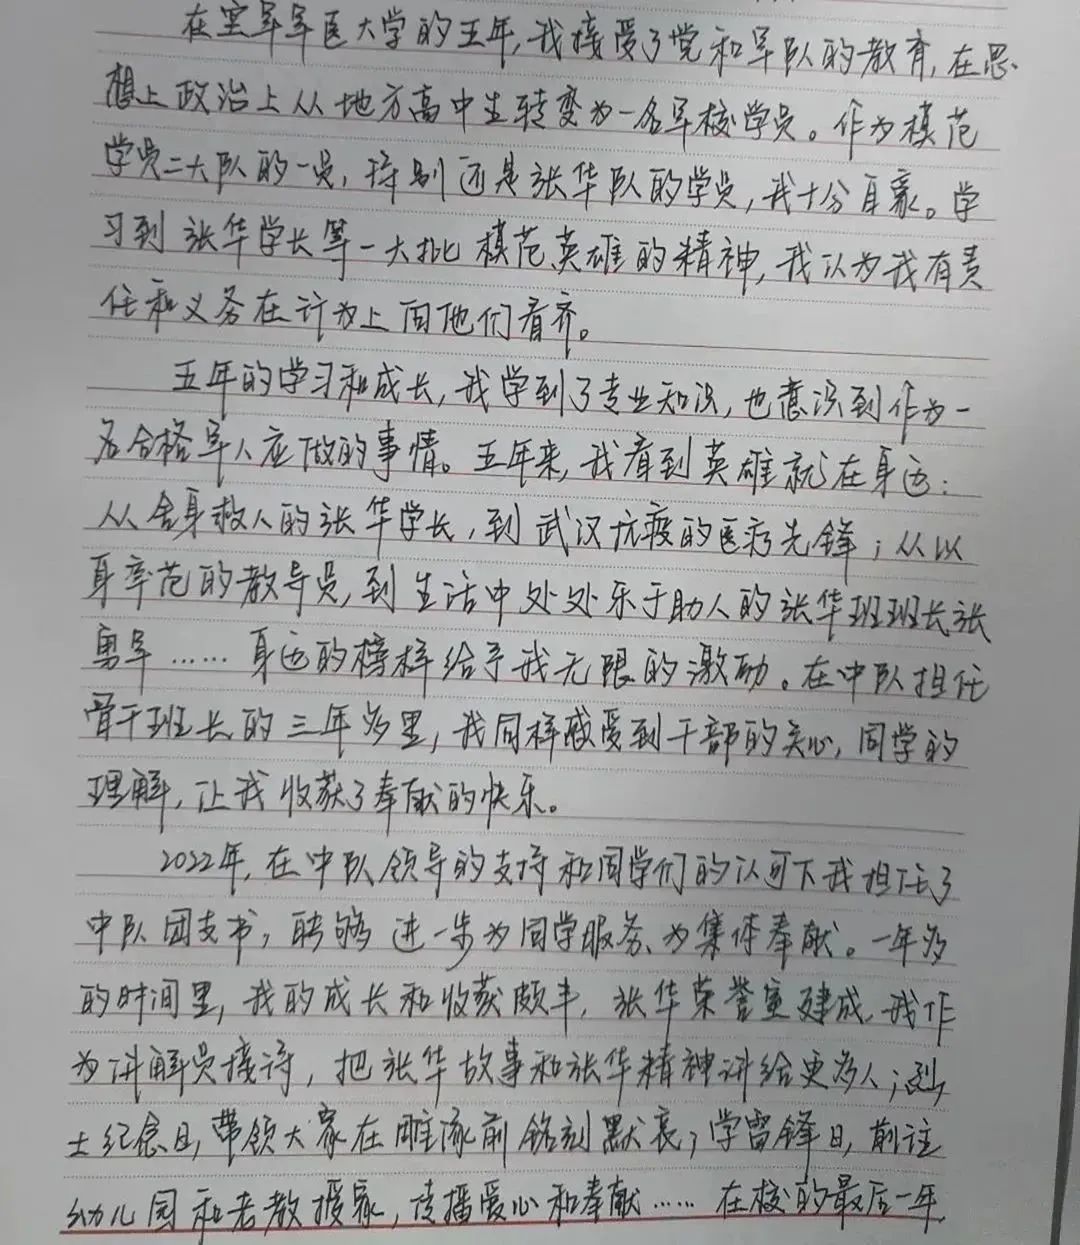 在空军军医大学的五年,我接受了党和军队的教育,在思
想上政治上从地方高中生转变为一名军校学员。作为模范
学员二大队的一员,特别还是张华队的学员,我十分自豪。学
习到张华学长等一大批模范英雄的精神,我认为我有责
任和义务在行为上向他们看齐。
五年的学习和成长,我学到了专业知识,也意识到作为一
名合格军人应做的事情。五年来,我看到英雄就在身边:
从舍身救人的张华学长,到武汉抗疫的医疗先锋;从以
身率范的教导员,到生活中处处乐于助人的张华班班长张
勇军……身边的榜样给予我无限的激励。在中队担任
骨干班长的三年多里,我同样感受到干部的关心,同学的
理解,让我收获了奉献的快乐。
2022年,在中队领导的支持和同学们的认可下我担任了
中队团支书,能够进一步为同学服务、为集体奉献。一年多
的时间里,我的成长和收获颇丰,张华荣誉室建成,我作
为讲解员接待,把张华故事和张华精神讲给更多人;烈
士纪念日,带领大家在雕塑前铭刻默哀;学雷锋日,前往
幼儿园和老教授家,传播爱心和奉献……在校的最后一年